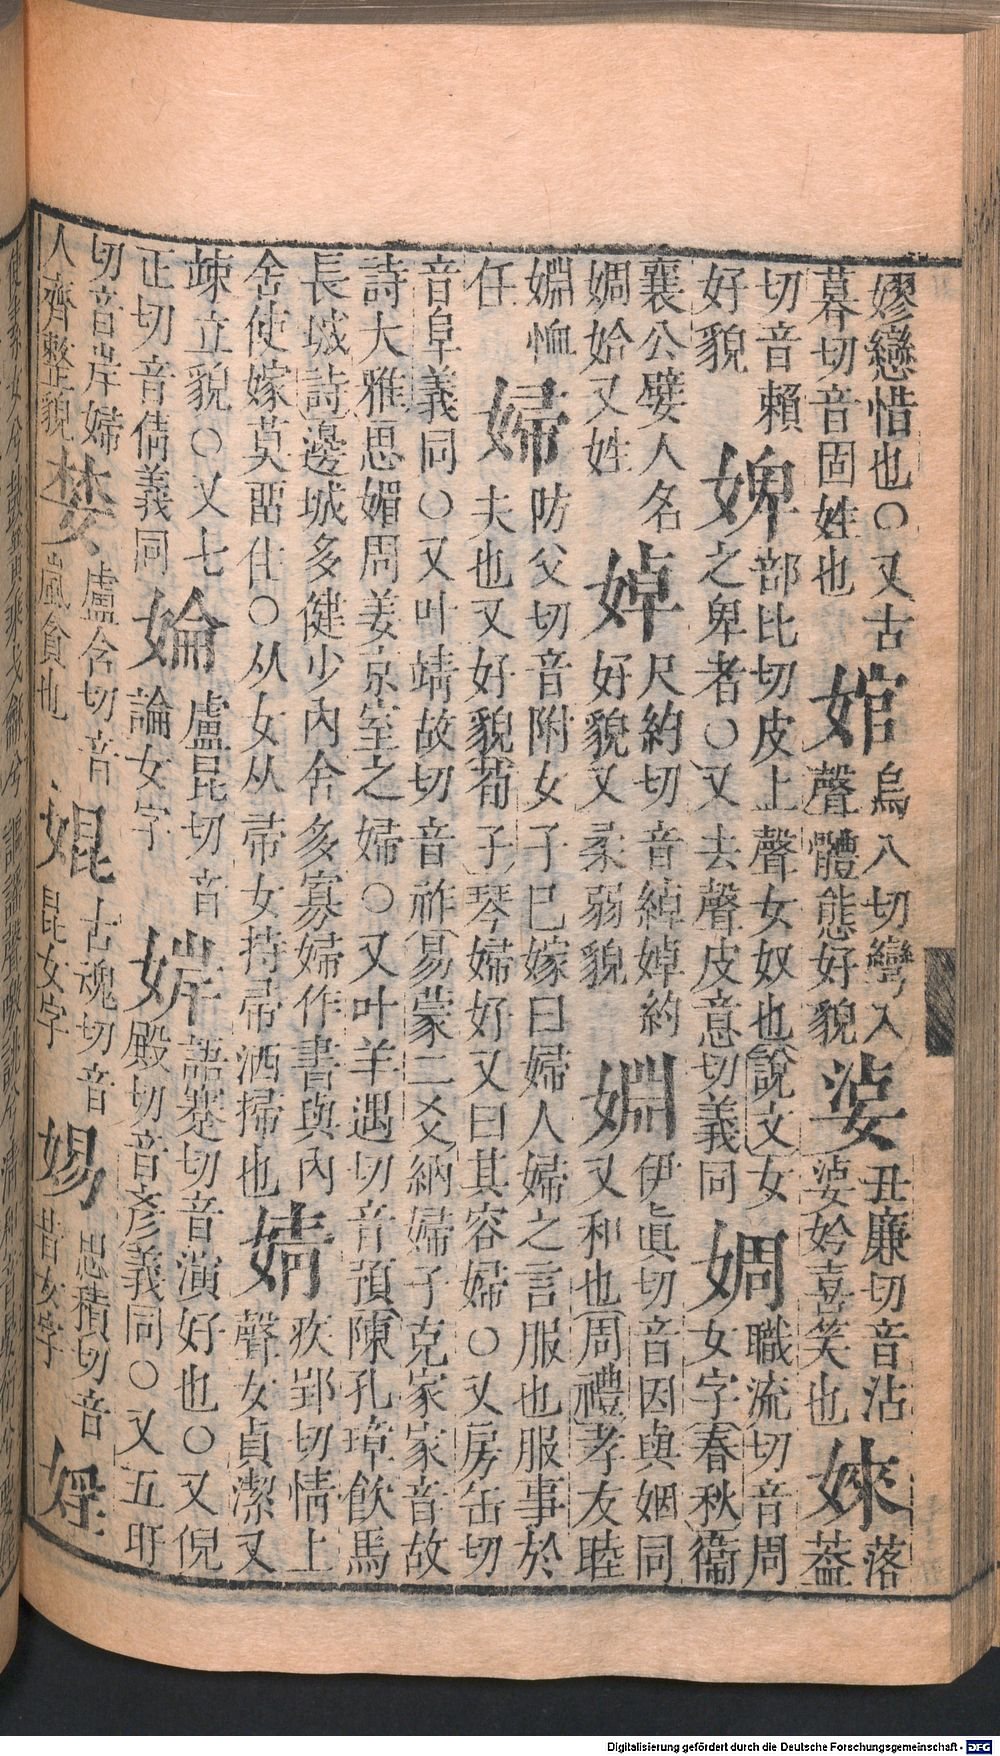 嫪戀惜也○又古
暮切音固姓也
婠
烏八切彎入
聲體態好貌
丑廉切音沾
妗喜笑也
婡
落
蓋
切音賴
好貌
婢
部比切皮上聲女奴也說文女
之卑者○又去聲皮意切義同
婤
職流切音周
女字春秋衞
襄公嬖人名
婤姶又姓
婥
尺約切音綽婥約
好貌又柔弱貌
婣
伊眞切音因與姻同
又和也周禮孝友睦
婣恤
任
婦
防父切音附女子已嫁曰婦人婦之言服也服事於
夫也又好貌荀子琴婦好又曰其容婦○又房缶切
音阜義同○又叶靖故切音祚易蒙二爻納婦子克家家音故
詩大雅思媚周姜京室之婦○又叶羊遇切音預陳孔璋飮馬
長城詩邊城多健少內舍多寡婦作書與內
舍使嫁莫畱住○从女从帚女持帚洒掃也
婧
疾郢切情上
聲女貞潔又
竦立貌○又七
正切音倩義同
婨
盧昆切音
論女字
婩
語蹇切音演好也○又倪
殿切音彥義同○又五旰
切音岸婦
人齊整貌
婪
盧含切音
嵐貪也
婫
古魂切音
昆女字
思積切音
昔女字
婬
Digitalisierung gefördert durch die Deutsche Forschungsgemeinschaft - DFG